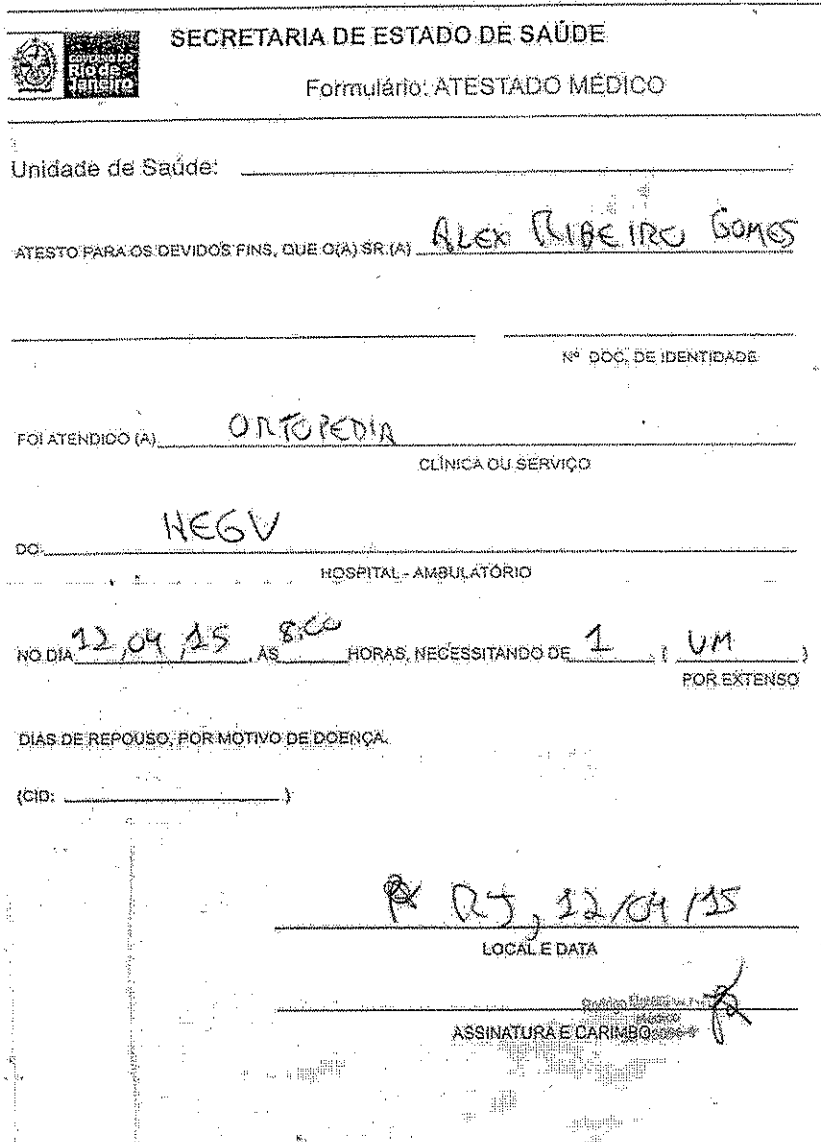 GOVERNO DO
Rio de
Janeiro
SECRETARIA DE ESTADO DE SAÚDE
Formulário: ATESTADO MÉDICO
Unidade de Saúde:
ATESTO PARA OS DEVIDOS FINS, QUE O(A) SR.(A) ALEX RIBEIRO GOMES
Nº DOC. DE IDENTIDADE
FOI ATENDIDO (A) ORTOPEDIA
CLÍNICA OU SERVIÇO
DO HEGV
HOSPITAL - AMBULATÓRIO
NO DIA 12/04/15, ÀS 8:00 HORAS, NECESSITANDO DE 1 ( UM )
POR EXTENSO
DIAS DE REPOUSO, POR MOTIVO DE DOENÇA.
(CID: )
RJ, 12/04/15
LOCAL E DATA
Médico
ASSINATURA E CARIMBO